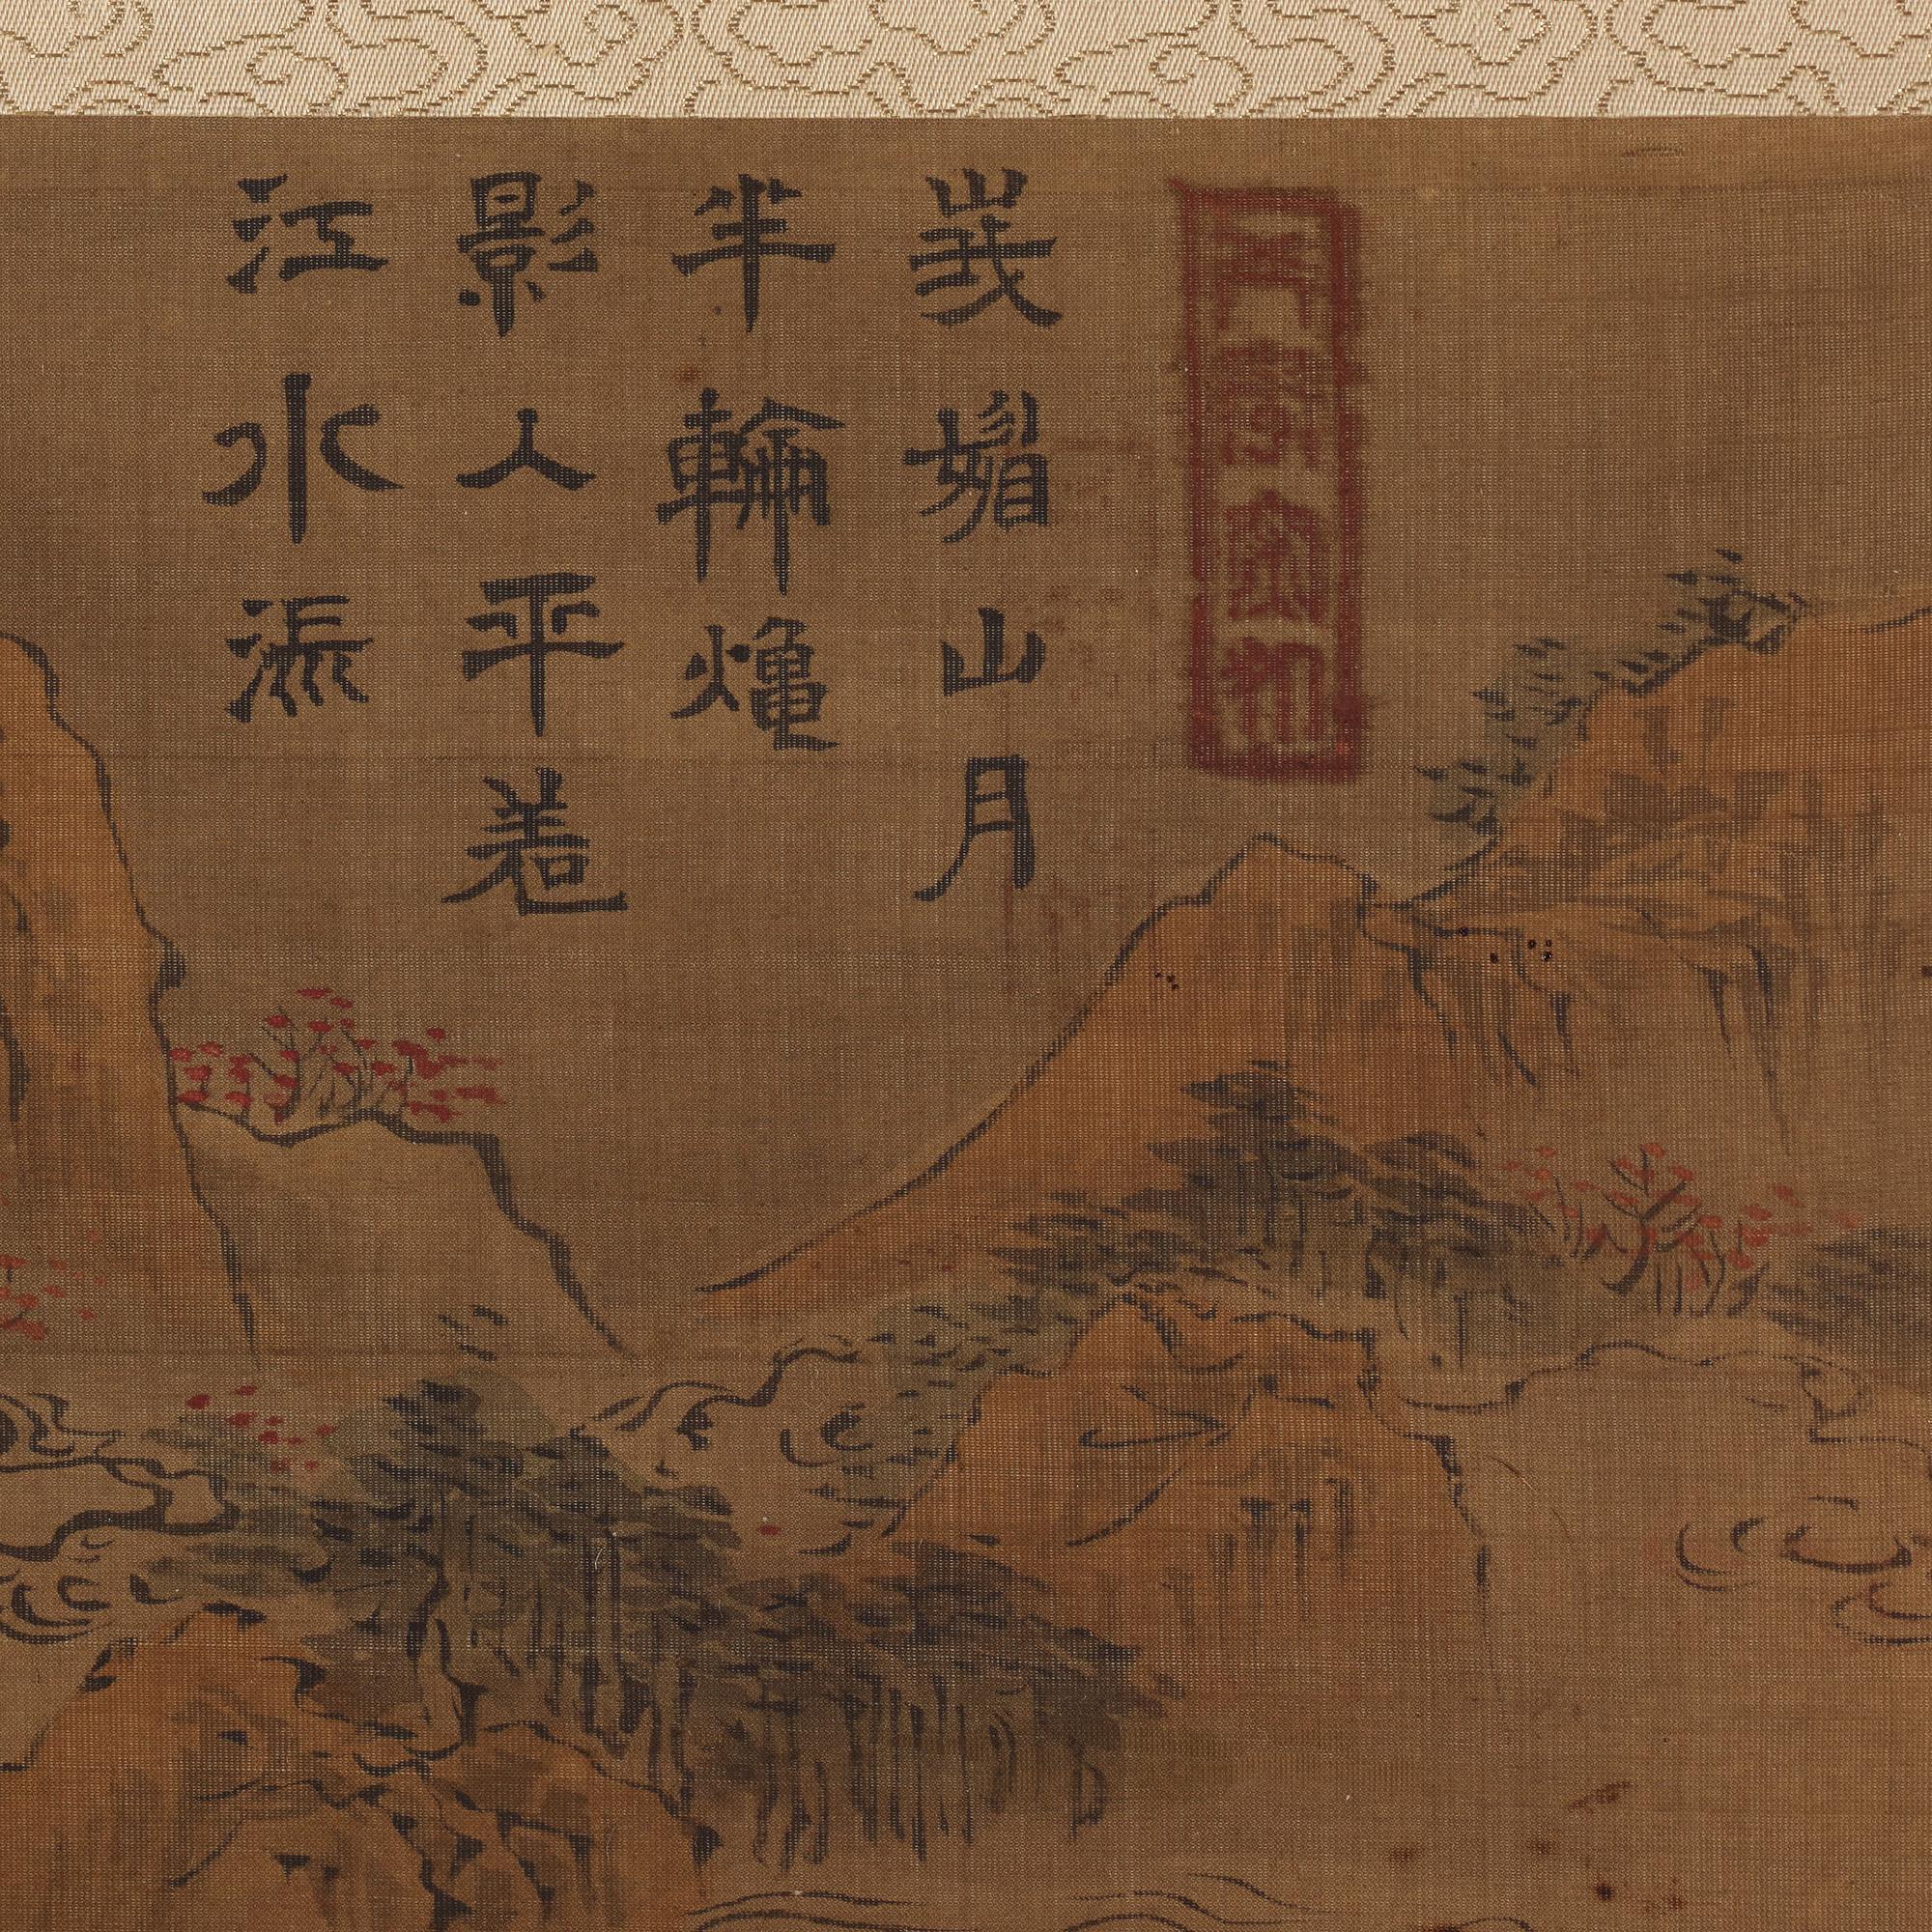 峩媚山月
半輪龝
影入平羌
江水流